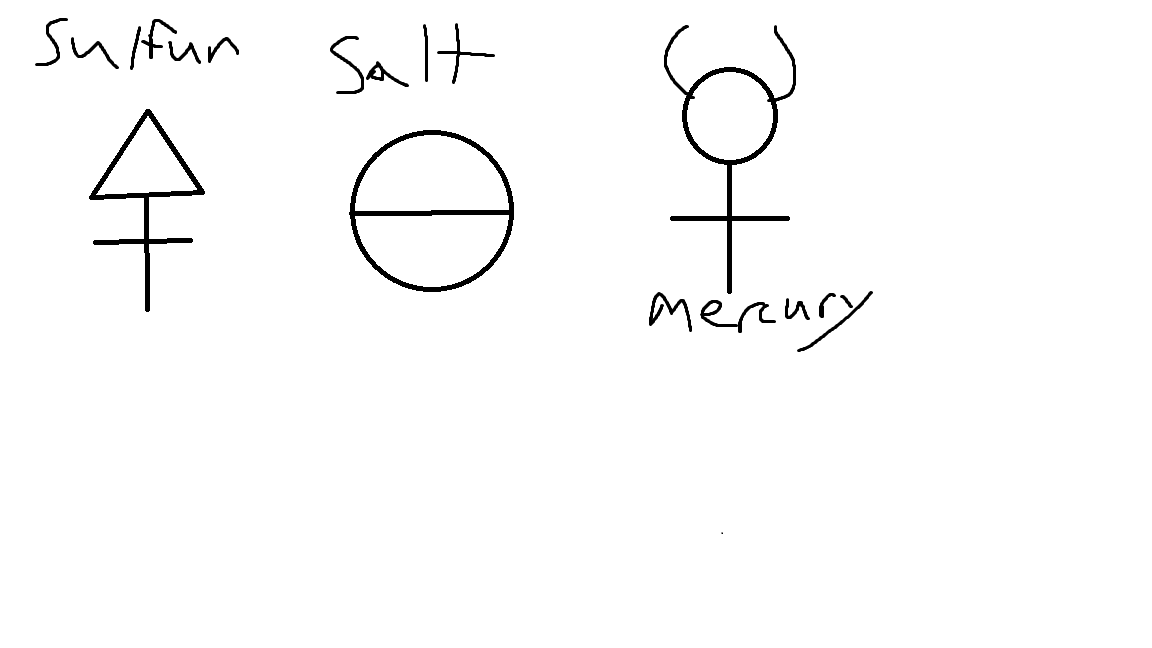 Sulfur
Salt
mercury